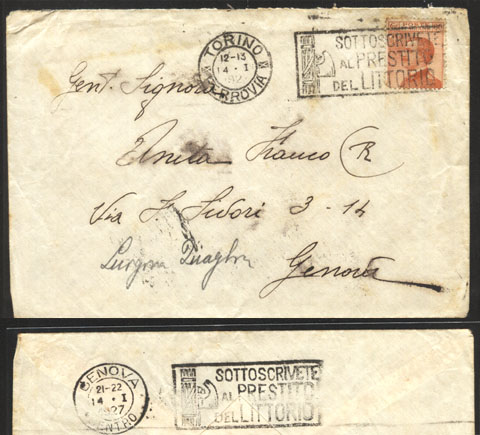 TORINO
12-13
14 · I
FERROVIA
SOTTOSCRIVETE
AL PRESTITO
DEL LITTORIO
Gent. Signora
Anita Franco (R
Via 3-14
Genova
GENOVA
21-22
14 · I
1927
CENTRO
SOTTOSCRIVETE
AL PRESTITO
DEL LITTORIO